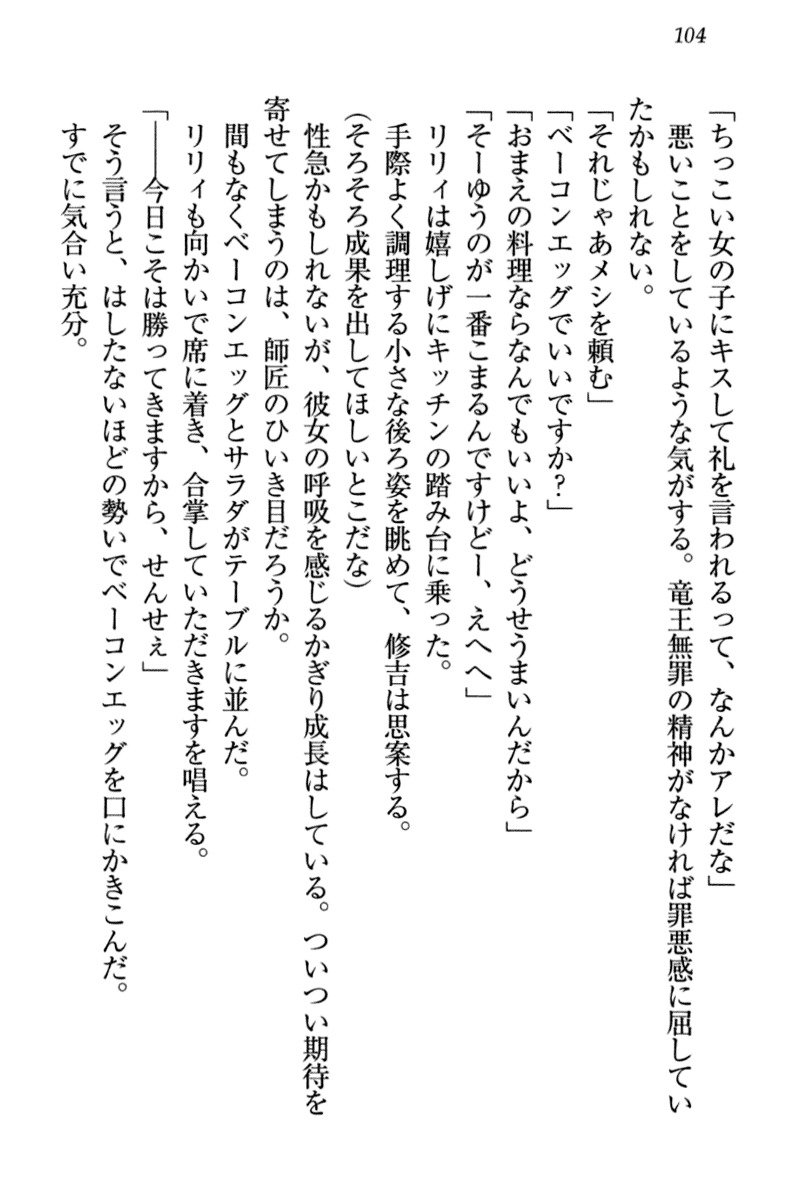 104
「ちっこい女の子にキスして礼を言われるって、なんかアレだな」
悪いことをしているような気がする。竜王無罪の精神がなければ罪悪感に屈してい
たかもしれない。
「それじゃあメシを頼む」
「ベーコンエッグでいいですか？」
「おまえの料理ならなんでもいいよ、どうせうまいんだから」
「そーゆうのが一番こまるんですけどー、えへへ」
リリィは嬉しげにキッチンの踏み台に乗った。
手際よく調理する小さな後ろ姿を眺めて、修吉は思案する。
（そろそろ成果を出してほしいとこだな）
性急かもしれないが、彼女の呼吸を感じるかぎり成長はしている。ついつい期待を
寄せてしまうのは、師匠のひいき目だろうか。
間もなくベーコンエッグとサラダがテーブルに並んだ。
リリィも向かいで席に着き、合掌していただきますを唱える。
「――今日こそは勝ってきますから、せんせぇ」
そう言うと、はしたないほどの勢いでベーコンエッグを口にかきこんだ。
すでに気合い充分。